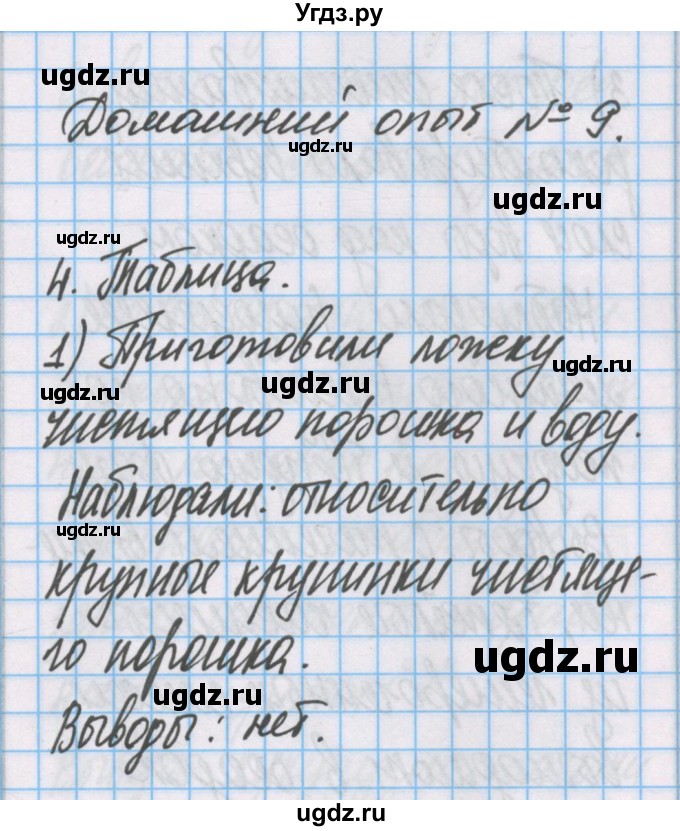 Угдз.ру
ugdz.ru
Домашний опыт № 9.
ugdz.ru
ugdz.ru
ugdz.ru
4. Таблица.
1) Приготовили ложку
ugdz.ru
ugdz.ru
ugdz.ru
чистящего порошка и воду.
Наблюдали: относительно
ugdz.ru
крупные крупинки чистяще-
го порошка.
ugdz.ru
ugdz.ru
Выводы: нет.
ugdz.ru